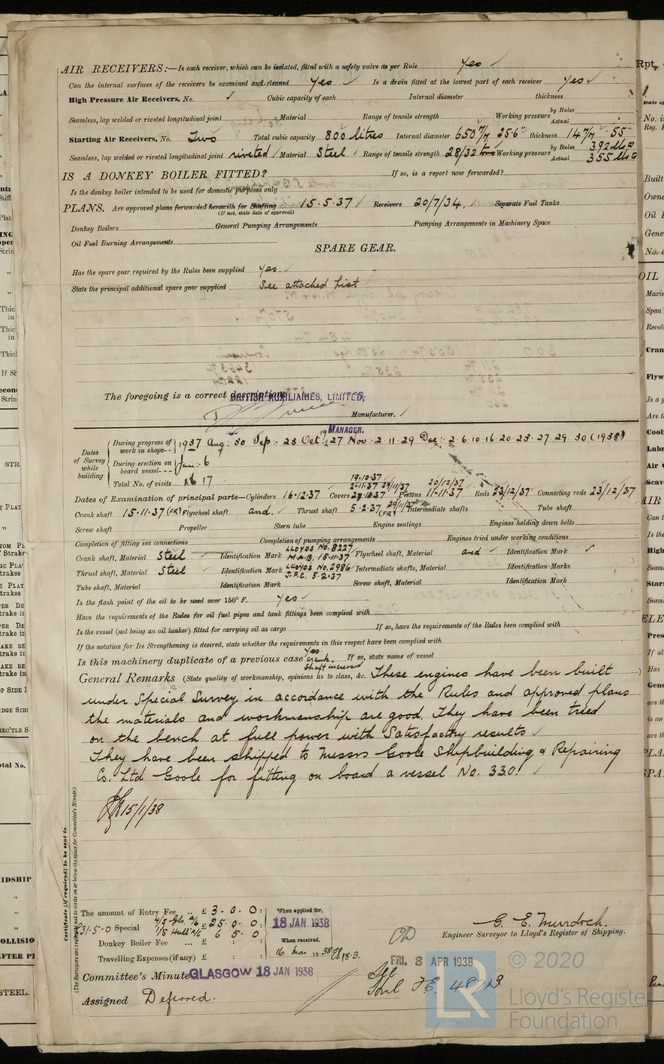 AIR RECEIVERS:—Is each receiver, which can be isolated, fitted with a safety valve as per Rule Yes
Can the internal surfaces of the receivers be examined and cleaned Yes Is a drain fitted at the lowest part of each receiver Yes
High Pressure Air Receivers, No. Cubic capacity of each Internal diameter thickness
Seamless, lap welded or riveted longitudinal joint Material Range of tensile strength Working pressure by Rules Actual
Starting Air Receivers, No. Two Total cubic capacity 800 litres Internal diameter 650 m/m 25.6" thickness 14 m/m .55"
Seamless, lap welded or riveted longitudinal joint riveted Material Steel Range of tensile strength 28/32 tons Working pressure by Rules 392 Actual 355
IS A DONKEY BOILER FITTED? If so, is a report now forwarded?
Is the donkey boiler intended to be used for domestic purposes only
PLANS. Are approved plans forwarded herewith for Shafting 15.5.37 Receivers 20/7/34. Separate Fuel Tanks
(If not, state date of approval)
Donkey Boilers General Pumping Arrangements Pumping Arrangements in Machinery Space
Oil Fuel Burning Arrangements
SPARE GEAR.
Has the spare gear required by the Rules been supplied Yes.
State the principal additional spare gear supplied See attached list
The foregoing is a correct description,
BRITISH AUXILIARIES, LIMITED,
Manufacturer.
MANAGER.
Dates of Survey while building
During progress of work in shops-- 1937 Aug: 30 Sep: 23 Oct: 19 27 Nov: 2 11 29 Dec: 2 6 10 16 20 23 27 29 30 (1938)
During erection on board vessel--- Jan: 6
Total No. of visits 17
Dates of Examination of principal parts—Cylinders 16.12.37 Covers 19.10.37 2.11.37 29/11/37 Pistons 11.11.37 20/12/37 Rods 23/12/37 Connecting rods 23/12/37
Crank shaft 15.11.37 Flywheel shaft and Thrust shaft 5.2.37 29/11/37 Intermediate shafts Tube shaft
Screw shaft Propeller Stern tube Engine seatings Engines holding down bolts
Completion of fitting sea connections Completion of pumping arrangements Engines tried under working conditions
Crank shaft, Material Steel Identification Mark LLOYDS No. 8227 15.11.37 Flywheel shaft, Material and Identification Mark
Thrust shaft, Material Steel Identification Mark LLOYDS No. 2986 5.2.37 Intermediate shafts, Material Identification Marks
Tube shaft, Material Identification Mark Screw shaft, Material Identification Mark
Is the flash point of the oil to be used over 150° F. Yes
Have the requirements of the Rules for oil fuel pipes and tank fittings been complied with
Is the vessel (not being an oil tanker) fitted for carrying oil as cargo If so, have the requirements of the Rules been complied with
If the notation for Ice Strengthening is desired, state whether the requirements in this respect have been complied with
Is this machinery duplicate of a previous case Yes crank shaft If so, state name of vessel
General Remarks (State quality of workmanship, opinions as to class, &c. These engines have been built
under Special Survey in accordance with the Rules and approved plans
the materials and workmanship are good. They have been tried
on the bench at full power with Satisfactory results
They have been shipped to Messrs Goole Shipbuilding & Repairing
Co. Ltd Goole for fitting on board a vessel No. 330.
15/1/38
Certificate (if required) to be sent to
(The Surveyors are requested not to write on or below the space for Committee's Minute.)
The amount of Entry Fee .. £ 3 - 0 - 0 When applied for,
£31-5-0 Special 4/5 £ 25 - 0 - 0 18 JAN 1938
1/5 Hull 6 5 - 0
Donkey Boiler Fee ... £ When received,
Travelling Expenses (if any) £ 16 Mar. 1938
G. E. Murdoch.
Engineer Surveyor to Lloyd's Register of Shipping.
Committee's Minute GLASGOW 18 JAN 1938
FRI. 8 APR 1938
Assigned Deferred.
© 2020
LR
Lloyd's Register
Foundation